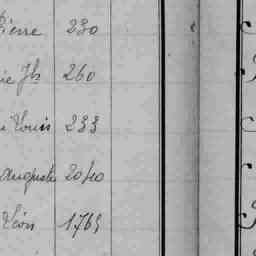 Pierre 230
ie Jh 260
Louis 233
Auguste 2040
Léon 1765